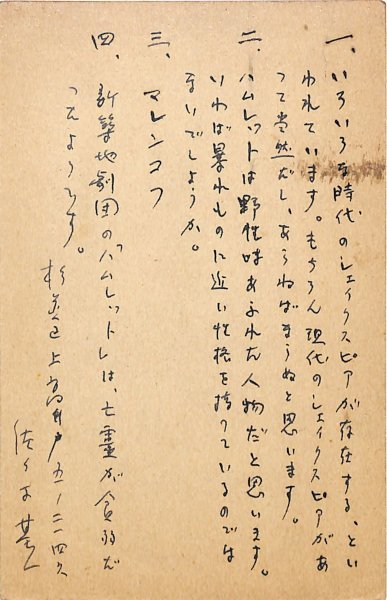 一、いろいろな時代のシェイクスピアが存在する、とい
われています。もちろん現代のシェイクスピアがあ
って当然だし、あらねばまうぬと思います。
二、ハムレットは野性味あふれた人物だと思います。
いわば暴れものに近い性格を持っているのでは
ないでしょうか。
三、マレンコフ
四、新築地劇団のハムレットは、亡霊が貧弱だ
ったようです。
杉並区上高井戸五ノ二一四六
佐々木基一